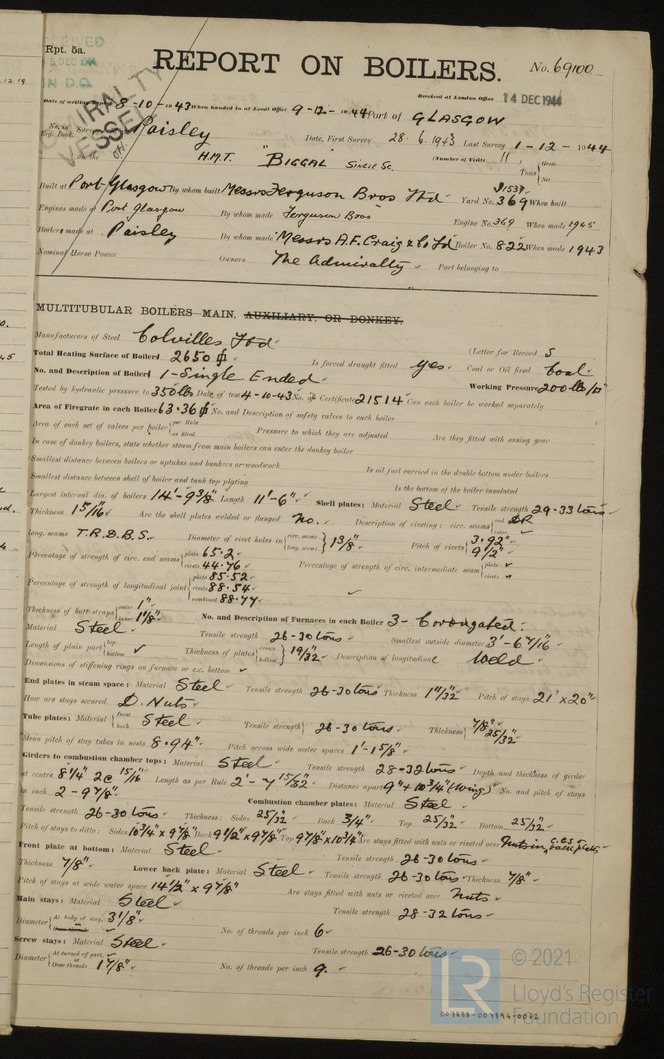 Rpt. 5a.
REPORT ON BOILERS.
No. 69100
Received at London Office 14 DEC 1944
ADMIRALTY VESSEL
Date of writing 8-10-1943 When handed in at Local Office 9-12-1944 Port of GLASGOW
No. in Reg. Book. Survey Paisley Date, First Survey 28.6.1943 Last Survey 1-12-1944
on the H.M.T. "BIGGAL Single Sc. (Number of Visits 11) Tons Gross Net
Built at Port Glasgow By whom built Messrs Ferguson Bros Ltd Yard No. 369 When built
Engines made at Port Glasgow By whom made Ferguson Bros Engine No. 369 When made 1945
Boilers made at Paisley By whom made Messrs A.F. Craig & Co Ltd Boiler No. 822 When made 1943
Nominal Horse Power Owners The Admiralty. Port belonging to
MULTITUBULAR BOILERS MAIN, AUXILIARY, OR DONKEY.
Manufacturers of Steel Colvilles Ltd. (Letter for Record S
Total Heating Surface of Boilers 2650 Is forced draught fitted Yes. Coal or Oil fired Coal.
No. and Description of Boilers 1-Single Ended. Working Pressure 200 lbs/□"
Tested by hydraulic pressure to 350 lbs Date of test 4-10-43 No. of Certificate 21514 Can each boiler be worked separately
Area of Firegrate in each Boiler 63.36 No. and Description of safety valves to each boiler
Area of each set of valves per boiler per Rule as fitted Pressure to which they are adjusted Are they fitted with easing gear
In case of donkey boilers, state whether steam from main boilers can enter the donkey boiler
Smallest distance between boilers or uptakes and bunkers or woodwork Is oil fuel carried in the double bottom under boilers
Smallest distance between shell of boiler and tank top plating Is the bottom of the boiler insulated
Largest internal dia. of boilers 14'-9 3/8" Length 11'-6" Shell plates: Material Steel Tensile strength 29-33 tons
Thickness 1 5/16" Are the shell plates welded or flanged No. Description of riveting: circ. seams end DR inter.
long. seams T.R.D.B.S. Diameter of rivet holes in circ. seams long. seams 1 3/8" Pitch of rivets 3.92" 9 1/2"
Percentage of strength of circ. end seams plate 65.2 rivets 44.76 Percentage of strength of circ. intermediate seam plate rivets
Percentage of strength of longitudinal joint plate 85.52 rivets 88.54 combined 88.77
Thickness of butt straps outer 1" inner 1 1/8" No. and Description of Furnaces in each Boiler 3- Corrugated.
Material Steel Tensile strength 26-30 tons Smallest outside diameter 3'-6 7/16"
Length of plain part top bottom Thickness of plates crown bottom 19/32" Description of longitudinal Weld
Dimensions of stiffening rings on furnace or c.c. bottom
End plates in steam space: Material Steel Tensile strength 26-30 tons Thickness 1 1/32" Pitch of stays 21" x 20"
How are stays secured D. Nuts
Tube plates: Material front back Steel Tensile strength 26-30 tons Thickness 7/8" 25/32"
Mean pitch of stay tubes in nests 8.94" Pitch across wide water spaces 1'-1 5/8"
Girders to combustion chamber tops: Material Steel Tensile strength 28-32 tons Depth and thickness of girder
at centre 8 1/4" 2@ 15/16 Length as per Rule 2'-7 15/32" Distance apart 9" + 10 3/4" (Wing) No. and pitch of stays
in each 2 - 9 7/8". Combustion chamber plates: Material Steel
Tensile strength 26-30 tons Thickness: Sides 25/32" Back 3/4" Top 25/32" Bottom 25/32"
Pitch of stays to ditto: Sides 10 3/4" x 9 7/8" Back 9 1/2" x 9 7/8" Top 9 7/8" x 10 3/4" Are stays fitted with nuts or riveted over Nuts in c.c.s back plates
Front plate at bottom: Material Steel Tensile strength 26-30 tons
Thickness 7/8" Lower back plate: Material Steel Tensile strength 26-30 tons Thickness 7/8"
Pitch of stays at wide water space 14 1/2" x 9 7/8" Are stays fitted with nuts or riveted over Nuts
Main stays: Material Steel Tensile strength 28-32 tons
Diameter At body of stay, 3 1/8" No. of threads per inch 6
Screw stays: Material Steel Tensile strength 26-30 tons
Diameter At turned off part, Over threads 1 7/8" No. of threads per inch 9.
LR © 2021
Lloyd's Register
Foundation